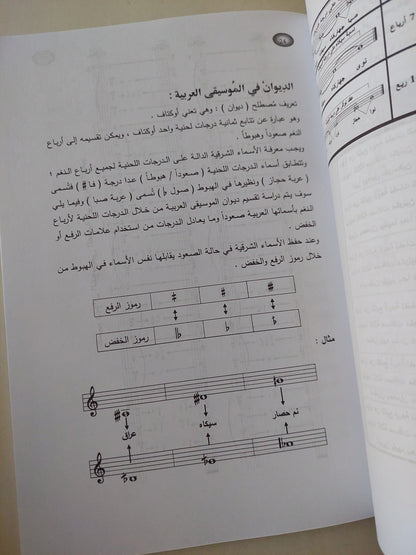 الديوان في المُوسيقى العربية :
تعريف مُصطلح ( ديوان ) : وهي تعني أوكتاف .
وهو عبارة عن تتابع ثمانية درجات لحنية واحد أوكتاف ، ويمكن تقسيمه إلى أرباع
النغم صعوداً وهبوطاً .
ويجب معرفة الأسماء الشرقية الدالة على الدرجات اللحنية لجميع أرباع النغم ؛
وتتطابق أسماء الدرجات اللحنية ( صعوداً / هبوطاً ) عدا درجة ( فا # ) فتُسمى
( عربة حجاز ) ونظيرها في الهبوط ( صول ♭ ) تُسمى ( عربة صبا ) وفيما يلي
سوف يتم دراسة تقسيم ديوان الموسيقى العربية من خلال الدرجات اللحنية لأرباع
النغم بأسمائها العربية صعوداً وما يعادل الدرجات من استخدام علامات الرفع أو
الخفض .
وعند حفظ الأسماء الشرقية في حالة الصعود يقابلها نفس الأسماء في الهبوط من
خلال رموز الرفع والخفض .
رموز الرفع
رموز الخفض
مثال :
عراق
سيكاه
تم حصار